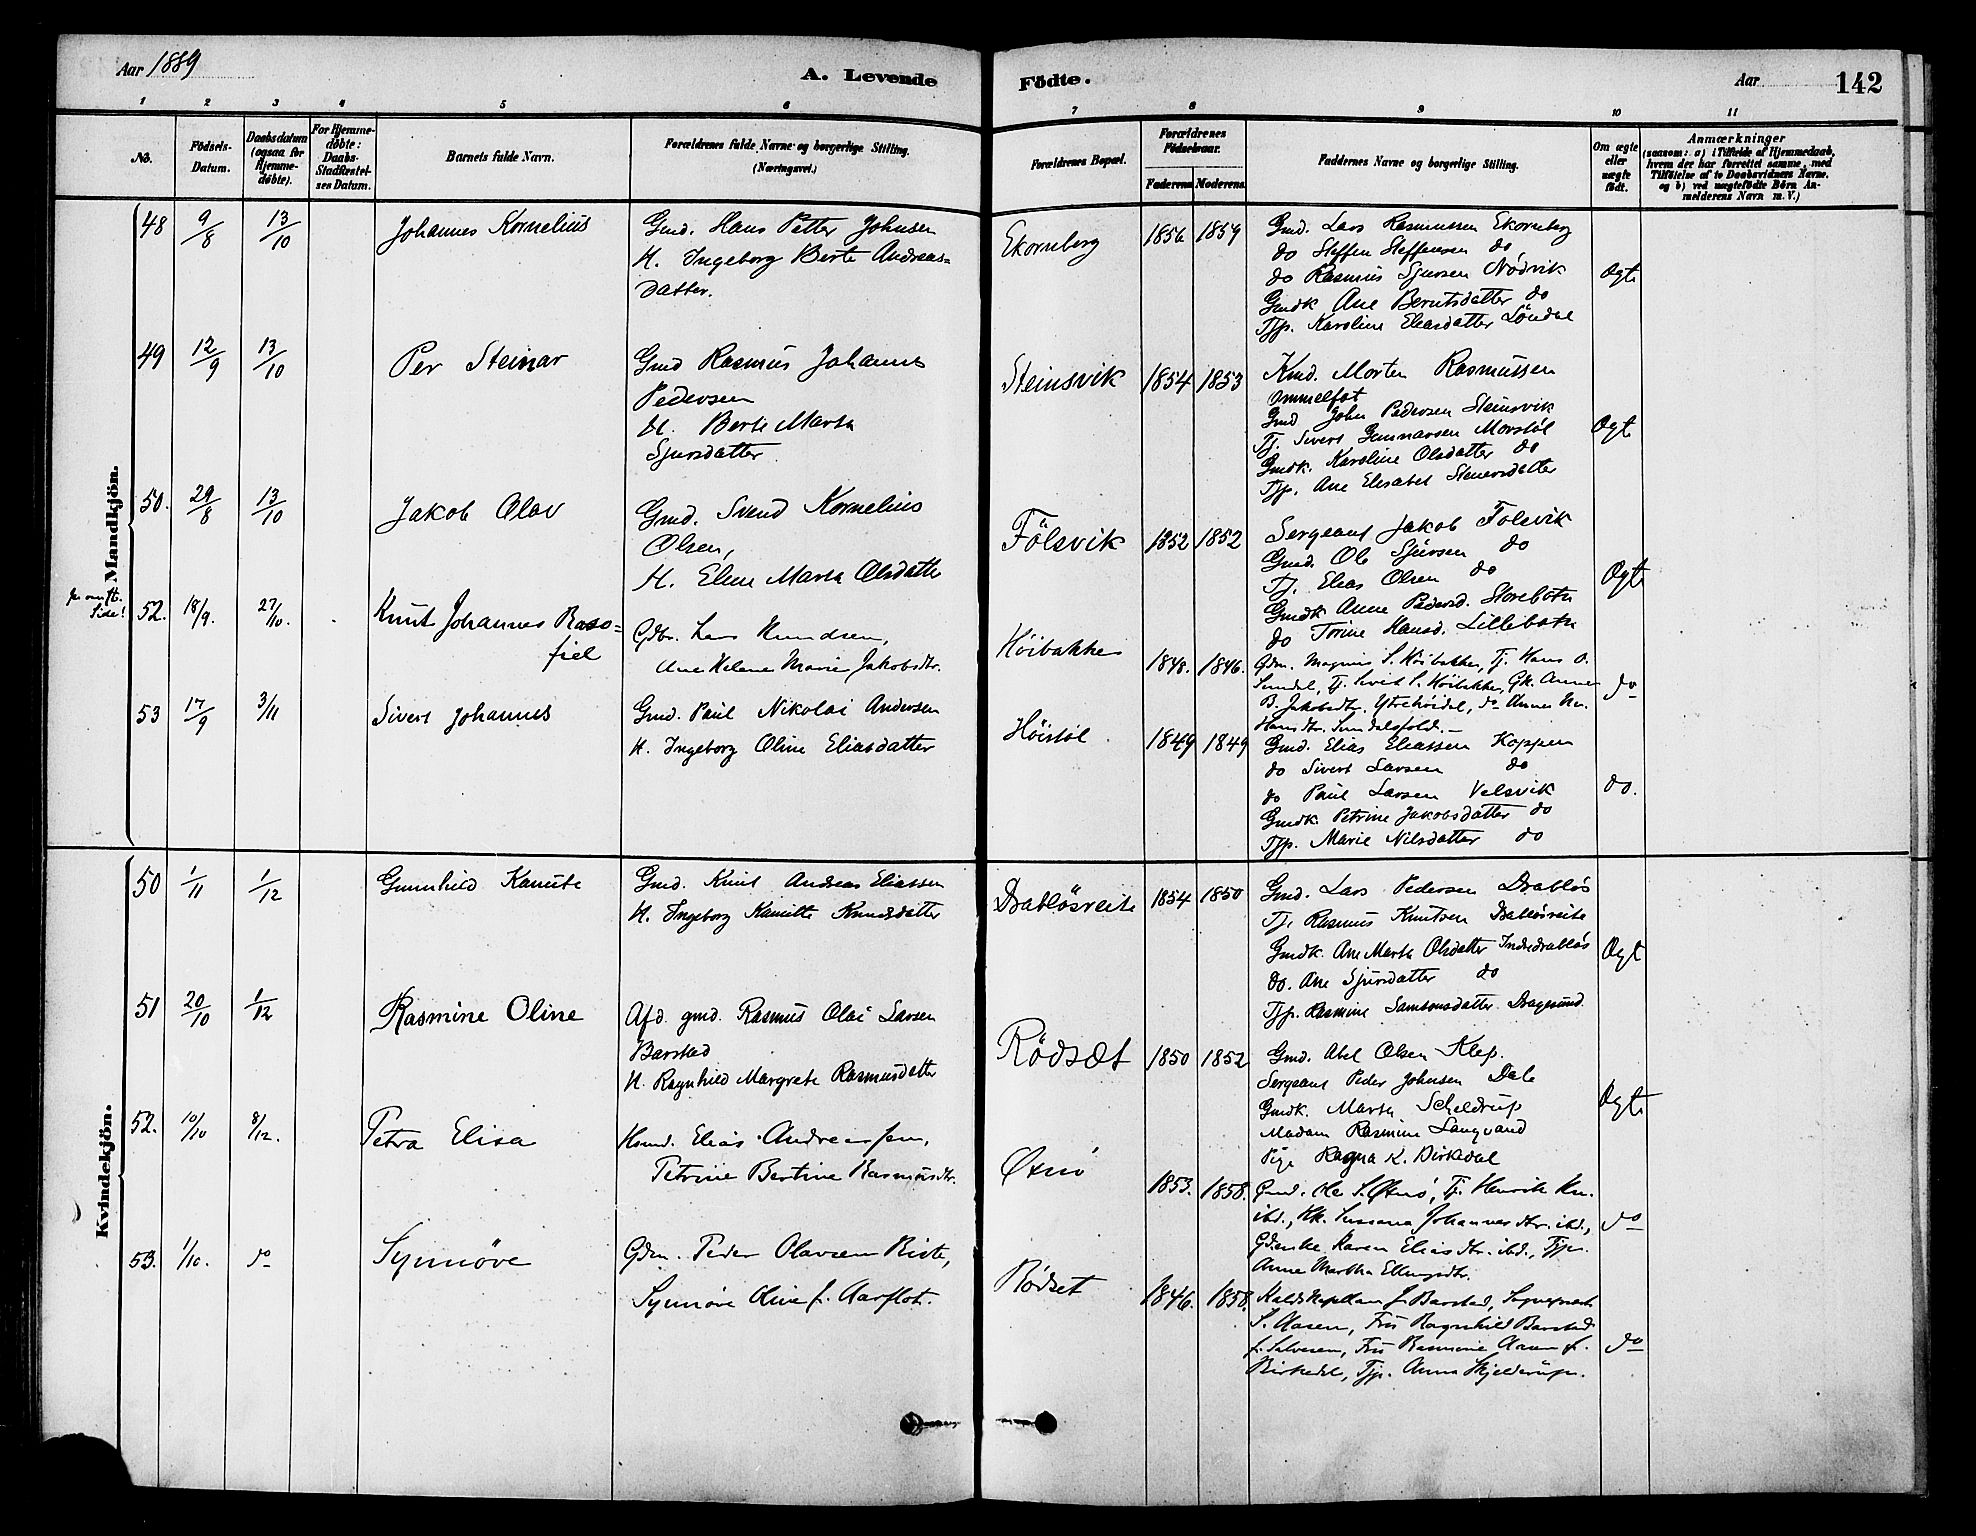 Aar 1889
A. Levende
Födte.
Aar
142
1 2 3 4 5 6 7 8 9 10 11
No.
Födsels-
Datum.
Daabsdatum
(ogsaa for
Hjemme-
døbte).
For Hjemme-
døbte:
Daabs-
Stadfæstel-
ses Datum.
Barnets fulde Navn.
Forældrenes fulde Navne og borgerlige Stilling.
(Næringsvei.)
Forældrenes Bopæl.
Forældrenes
Födselsaar.
Faderens Moderens
Faddernes Navne og borgerlige Stilling.
Om ægte
eller
uægte
födt.
Anmærkninger
(saasom: a) i Tilfælde af Hjemmedaab,
hvem der har forrettet samme, med
Tilföielse af to Daabsvidners Navne,
og b) ved uægtefödte Börn An-
melderens Navn m. V.)
Mandkjön.
48 9/8 13/10 Johannes Kornelius
Gmd. Hans Petter Johnsen
H. Ingeborg Berte Andreas=
datter.
Ekornberg 1856 1859
Gmd. Lars Rasmussen Ekornberg
do Steffen Steffensen do
do Rasmus Sjursen Nødvik
Gmdk Ane Berntsdatter do
Tjp. Karoline Eliasdatter Løndal
Ægte
49 12/9 13/10 Per Steinar
Gmd Rasmus Johannes
Pedersen
H. Berte Marta
Sjursdatter
Steinsvik 1854 1853
Kmd. Morten Rasmussen
Ommelfot
Gmd John Pedersen Steinsvik
Tj. Sivert Gunnarsen Morstøl
Gmdk. Karoline Olsdatter do
Tjp. Ane Elisabet Steinersdatter
Ægte
50. 29/8 13/10 Jakob Olav
Gmd. Svend Kornelius
Olsen,
H. Eline Marta Olsdatter
Fölsvik 1852 1852
Sergeant Jakob Folsvik
Gmd. Ole Sjursen do
Tj. Elias Olsen do
Gmdk Anne Pedersd. Storebotn
do Trine Hansd. Lillebotn
Ægte
52. 18/9. 27/10. Knut Johannes Baso=
fiel
Gdbr. Lars Knudsen,
Ane Helene Marie Jakobsdtr.
Höibakken 1848. 1846.
Gdm. Magnus S. Höibakken, Tj. Hans O.
Sundal, Tj. Sivert S. Höibakken, Gk. Anne
B. Jakobsdtr. Ytrehöidal, do Anne Kn.
Hansdtr. Sundalsfold.
do
53 17/9 3/11 Sivert Johannes
Gmd. Paul Nikolai Andersen
H. Ingeborg Oline Eliasdatter
Höistøl 1849 1849
Gmd. Elias Eliassen Koppen
do Sivert Larsen do
do Paul Larsen Velsvik
Gmdk. Petrine Jakobsdatter do
Tjp. Marie Nilsdatter do
do.
Kvindekjön.
50 1/11 1/12 Gunnhild Kamite
Gmd. Knut Andreas Eliassen
H. Ingeborg Kamitte Knudsdatter
Drabløsreite 1854 1850
Gmd. Lars Pedersen Drabløs
Tj. Rasmus Knutsen Drabløsreite
Gmdk. Ane Marta Olsdatter Indredrabløs
do. Ane Sjursdatter do
Tjp. Rasmine Samsonsdatter Dragesund
Ægt
51 20/10 1/12 Rasmine Oline
Afd. gmd. Rasmus Olai Larsen
Barstad
H. Ragnhild Margrete Rasmusdatter
Rödsæt 1850 1852
Gmd. Abel Olsen Klep.
Sergeant Peder Johnsen Dale
Gmdk. Marta Scheldrup
Madam Rasmine Langvand
Pige Ragna K. Birkedal
Ægte
52. 10/10 8/12. Petra Elisa
Hsmd. Elias Andreassen,
Petrine Bertine Rasmusdtr.
Øxnö 1853. 1858.
Gmd. Ole S. Øxnö, Tj. Henrik Kn.
ibd., Hk. Susana Johannesdtr. ibd.,
Gdenke Karen Eliasdtr. ibd., Tjp.
Anne Martha Ellingsdtr.
do
53. 1/10. do Synnöve
Gdm. Peder Olavsen Riste,
Synnøve Oline f. Aarflot.
Rödset 1846. 1858.
Kaldskapellan J. Barstad, Sogneprest
S. Aasen, Fru Ragnhild Barstad
f. Salvesen, Fru Rasmine Aasen f.
Birkedal, Tjp. Anna Skjelderup.
do